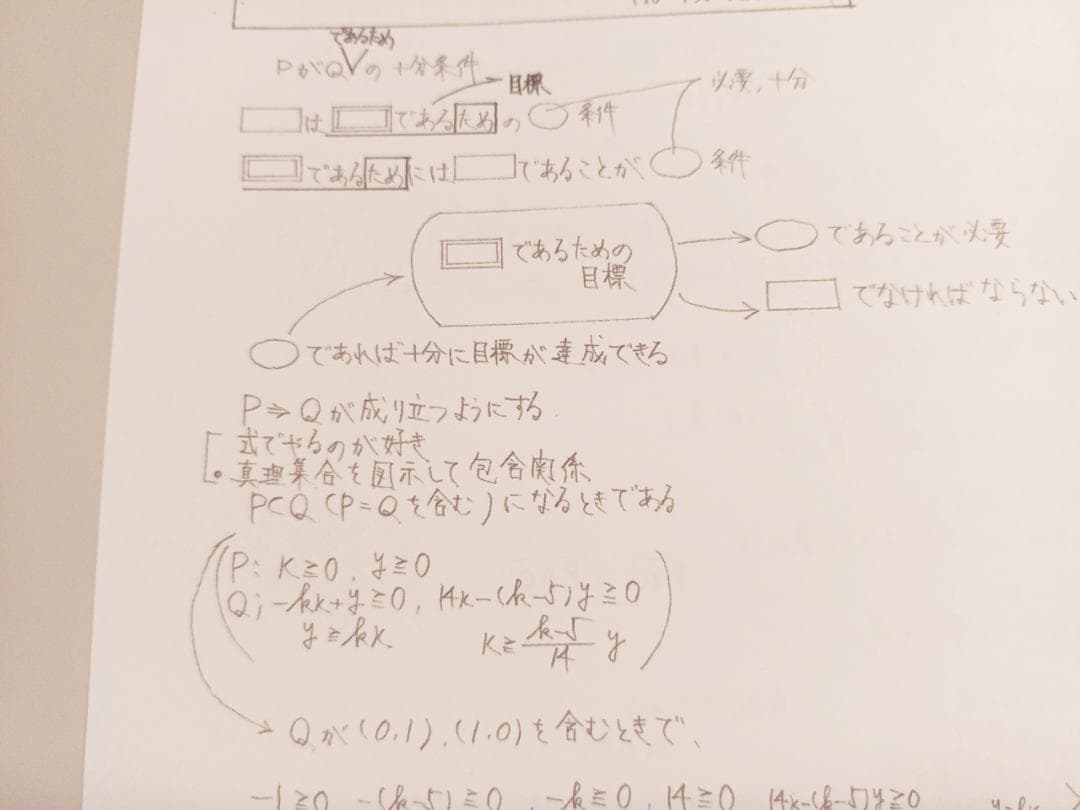 であるため
PがQの十分条件
目標
必要,十分
は であるための 条件
であるためには であることが 条件
であるための
目標
であることが必要
でなければならない
であれば十分に目標が達成できる
P⇒Qが成り立つようにする.
式でやるのが好き
真理集合を図示して包含関係
P⊂Q(P=Qを含む)になるときである
P: x≧0, y≧0
Q; -kx+y≧0, 14x-(k-5)y≧0
y≧kx x≧\frac{k-5}{14} y
Qが(0,1),(1,0)を含むときで、
-1≧0, -(k-5)≧0, -k≧0, 14≧0 14x-(k-5)y≧0